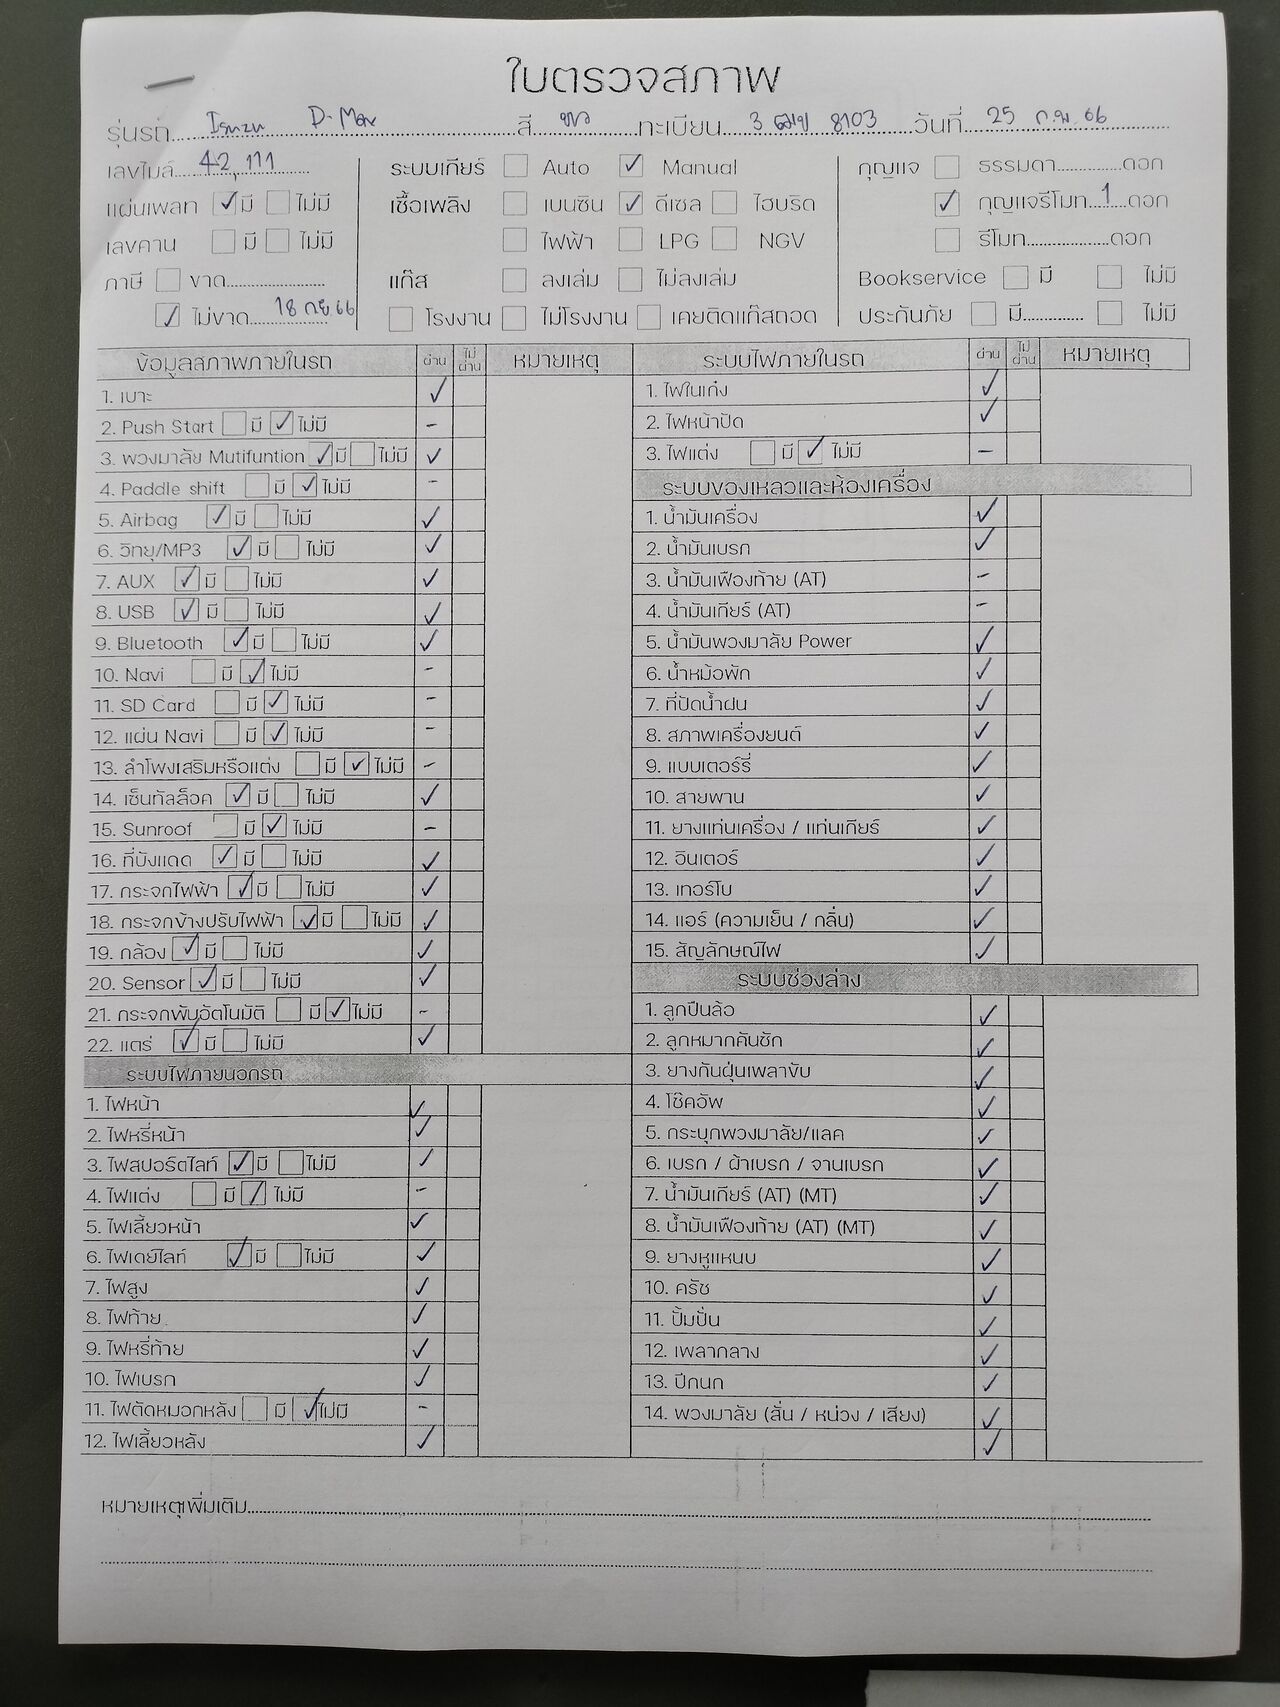 ใบตรวจสภาพ
รุ่นรถ Isuzu D-Max สี ขาว ทะเบียน 3 8103 วันที่ 25 ก.พ. 66
เลขไมล์ 42,111 ระบบเกียร์ ☐ Auto ☑ Manual กุญแจ ☐ ธรรมดา..............ดอก
แผ่นเพลท ☑ มี ☐ ไม่มี เชื้อเพลิง ☐ เบนซิน ☑ ดีเซล ☐ ไฮบริด ☑ กุญแจรีโมท...1...ดอก
เลขคาน ☐ มี ☐ ไม่มี ☐ ไฟฟ้า ☐ LPG ☐ NGV ☐ รีโมท..................ดอก
ภาษี ☐ ขาด.................. แก๊ส ☐ ลงเล่ม ☐ ไม่ลงเล่ม Bookservice ☐ มี ☐ ไม่มี
☑ ไม่ขาด 18 ก.ย. 66 ☐ โรงงาน ☐ ไม่โรงงาน ☐ เคยติดแก๊สถอด ประกันภัย ☐ มี............. ☐ ไม่มี
ข้อมูลสภาพภายในรถ ผ่าน ไม่ผ่าน หมายเหตุ
1. เบาะ ✓
2. Push Start ☐ มี ☑ ไม่มี -
3. พวงมาลัย Mutifuntion ☑ มี ☐ ไม่มี ✓
4. Paddle shift ☐ มี ☑ ไม่มี -
5. Airbag ☑ มี ☐ ไม่มี ✓
6. วิทยุ/MP3 ☑ มี ☐ ไม่มี ✓
7. AUX ☑ มี ☐ ไม่มี ✓
8. USB ☑ มี ☐ ไม่มี ✓
9. Bluetooth ☑ มี ☐ ไม่มี ✓
10. Navi ☐ มี ☑ ไม่มี -
11. SD Card ☐ มี ☑ ไม่มี -
12. แผ่น Navi ☐ มี ☑ ไม่มี -
13. ลำโพงเสริมหรือแต่ง ☐ มี ☑ ไม่มี -
14. เซ็นทัลล็อค ☑ มี ☐ ไม่มี ✓
15. Sunroof ☐ มี ☑ ไม่มี -
16. ที่บังแดด ☑ มี ☐ ไม่มี ✓
17. กระจกไฟฟ้า ☑ มี ☐ ไม่มี ✓
18. กระจกข้างปรับไฟฟ้า ☑ มี ☐ ไม่มี ✓
19. กล้อง ☑ มี ☐ ไม่มี ✓
20. Sensor ☑ มี ☐ ไม่มี ✓
21. กระจกพับอัตโนมัติ ☐ มี ☑ ไม่มี -
22. แตร่ ☑ มี ☐ ไม่มี ✓
ระบบไฟภายนอกรถ
1. ไฟหน้า ✓
2. ไฟหรี่หน้า ✓
3. ไฟสปอร์ตไลท์ ☑ มี ☐ ไม่มี ✓
4. ไฟแต่ง ☐ มี ☑ ไม่มี -
5. ไฟเลี้ยวหน้า ✓
6. ไฟเดย์ไลท์ ☑ มี ☐ ไม่มี ✓
7. ไฟสูง ✓
8. ไฟท้าย ✓
9. ไฟหรี่ท้าย ✓
10. ไฟเบรก ✓
11. ไฟตัดหมอกหลัง ☐ มี ☑ ไม่มี -
12. ไฟเลี้ยวหลัง ✓
ระบบไฟภายในรถ ผ่าน ไม่ผ่าน หมายเหตุ
1. ไฟในเก๋ง ✓
2. ไฟหน้าปัด ✓
3. ไฟแต่ง ☐ มี ☑ ไม่มี -
ระบบของเหลวและห้องเครื่อง
1. น้ำมันเครื่อง ✓
2. น้ำมันเบรก ✓
3. น้ำมันเฟืองท้าย (AT) -
4. น้ำมันเกียร์ (AT) -
5. น้ำมันพวงมาลัย Power ✓
6. น้ำหม้อพัก ✓
7. ที่ปัดน้ำฝน ✓
8. สภาพเครื่องยนต์ ✓
9. แบบเตอร์รี่ ✓
10. สายพาน ✓
11. ยางแท่นเครื่อง / แท่นเกียร์ ✓
12. อินเตอร์ ✓
13. เทอร์โบ ✓
14. แอร์ (ความเย็น / กลิ่น) ✓
15. สัญลักษณ์ไฟ ✓
ระบบช่วงล่าง
1. ลูกปืนล้อ ✓
2. ลูกหมากคันชัก ✓
3. ยางกันฝุ่นเพลาขับ ✓
4. โช๊คอัพ ✓
5. กระบุกพวงมาลัย/แลค ✓
6. เบรก / ผ้าเบรก / จานเบรก ✓
7. น้ำมันเกียร์ (AT) (MT) ✓
8. น้ำมันเฟืองท้าย (AT) (MT) ✓
9. ยางหูแหนบ ✓
10. ครัช ✓
11. ปั้มปั่น ✓
12. เพลากลาง ✓
13. ปีกนก ✓
14. พวงมาลัย (สั่น / หน่วง / เสียง) ✓
✓
หมายเหตุเพิ่มเติม